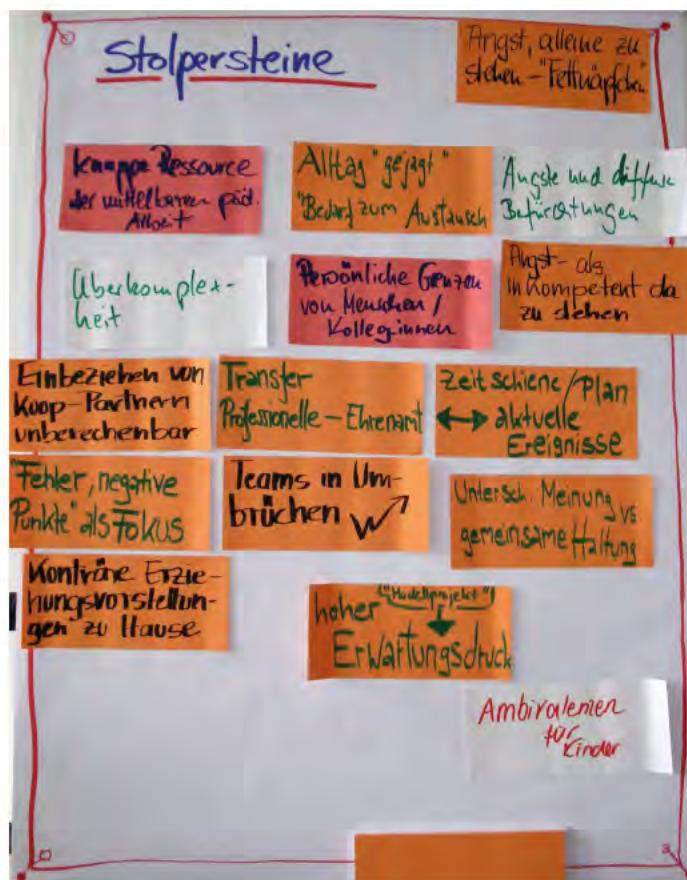 Stolpersteine
Angst, alleine zu
stehen - "Fettnäpfchen"
knappe Ressource
der mittelbaren päd.
Arbeit
Alltag "gejagt"
"Bedarf zum Austausch
Ängste und diffuse
Befürchtungen
Überkomplex-
heit
Persönliche Grenzen
von Menschen /
Kolleginnen
Angst - als
inkompetent da
zu stehen
Einbeziehen von
Koop-Partnern
unberechenbar
Transfer
Professionelle - Ehrenamt
Zeitschiene / Plan
↔ aktuelle
Ereignisse
"Fehler, negative
Punkte" als Fokus
Teams in Um-
brüchen
Untersch. Meinung vs
gemeinsame Haltung
Konträre Erzie-
hungsvorstellun-
gen zu Hause
("Modellprojekt")
hoher
Erwartungsdruck
Ambivalenzen
für
Kinder